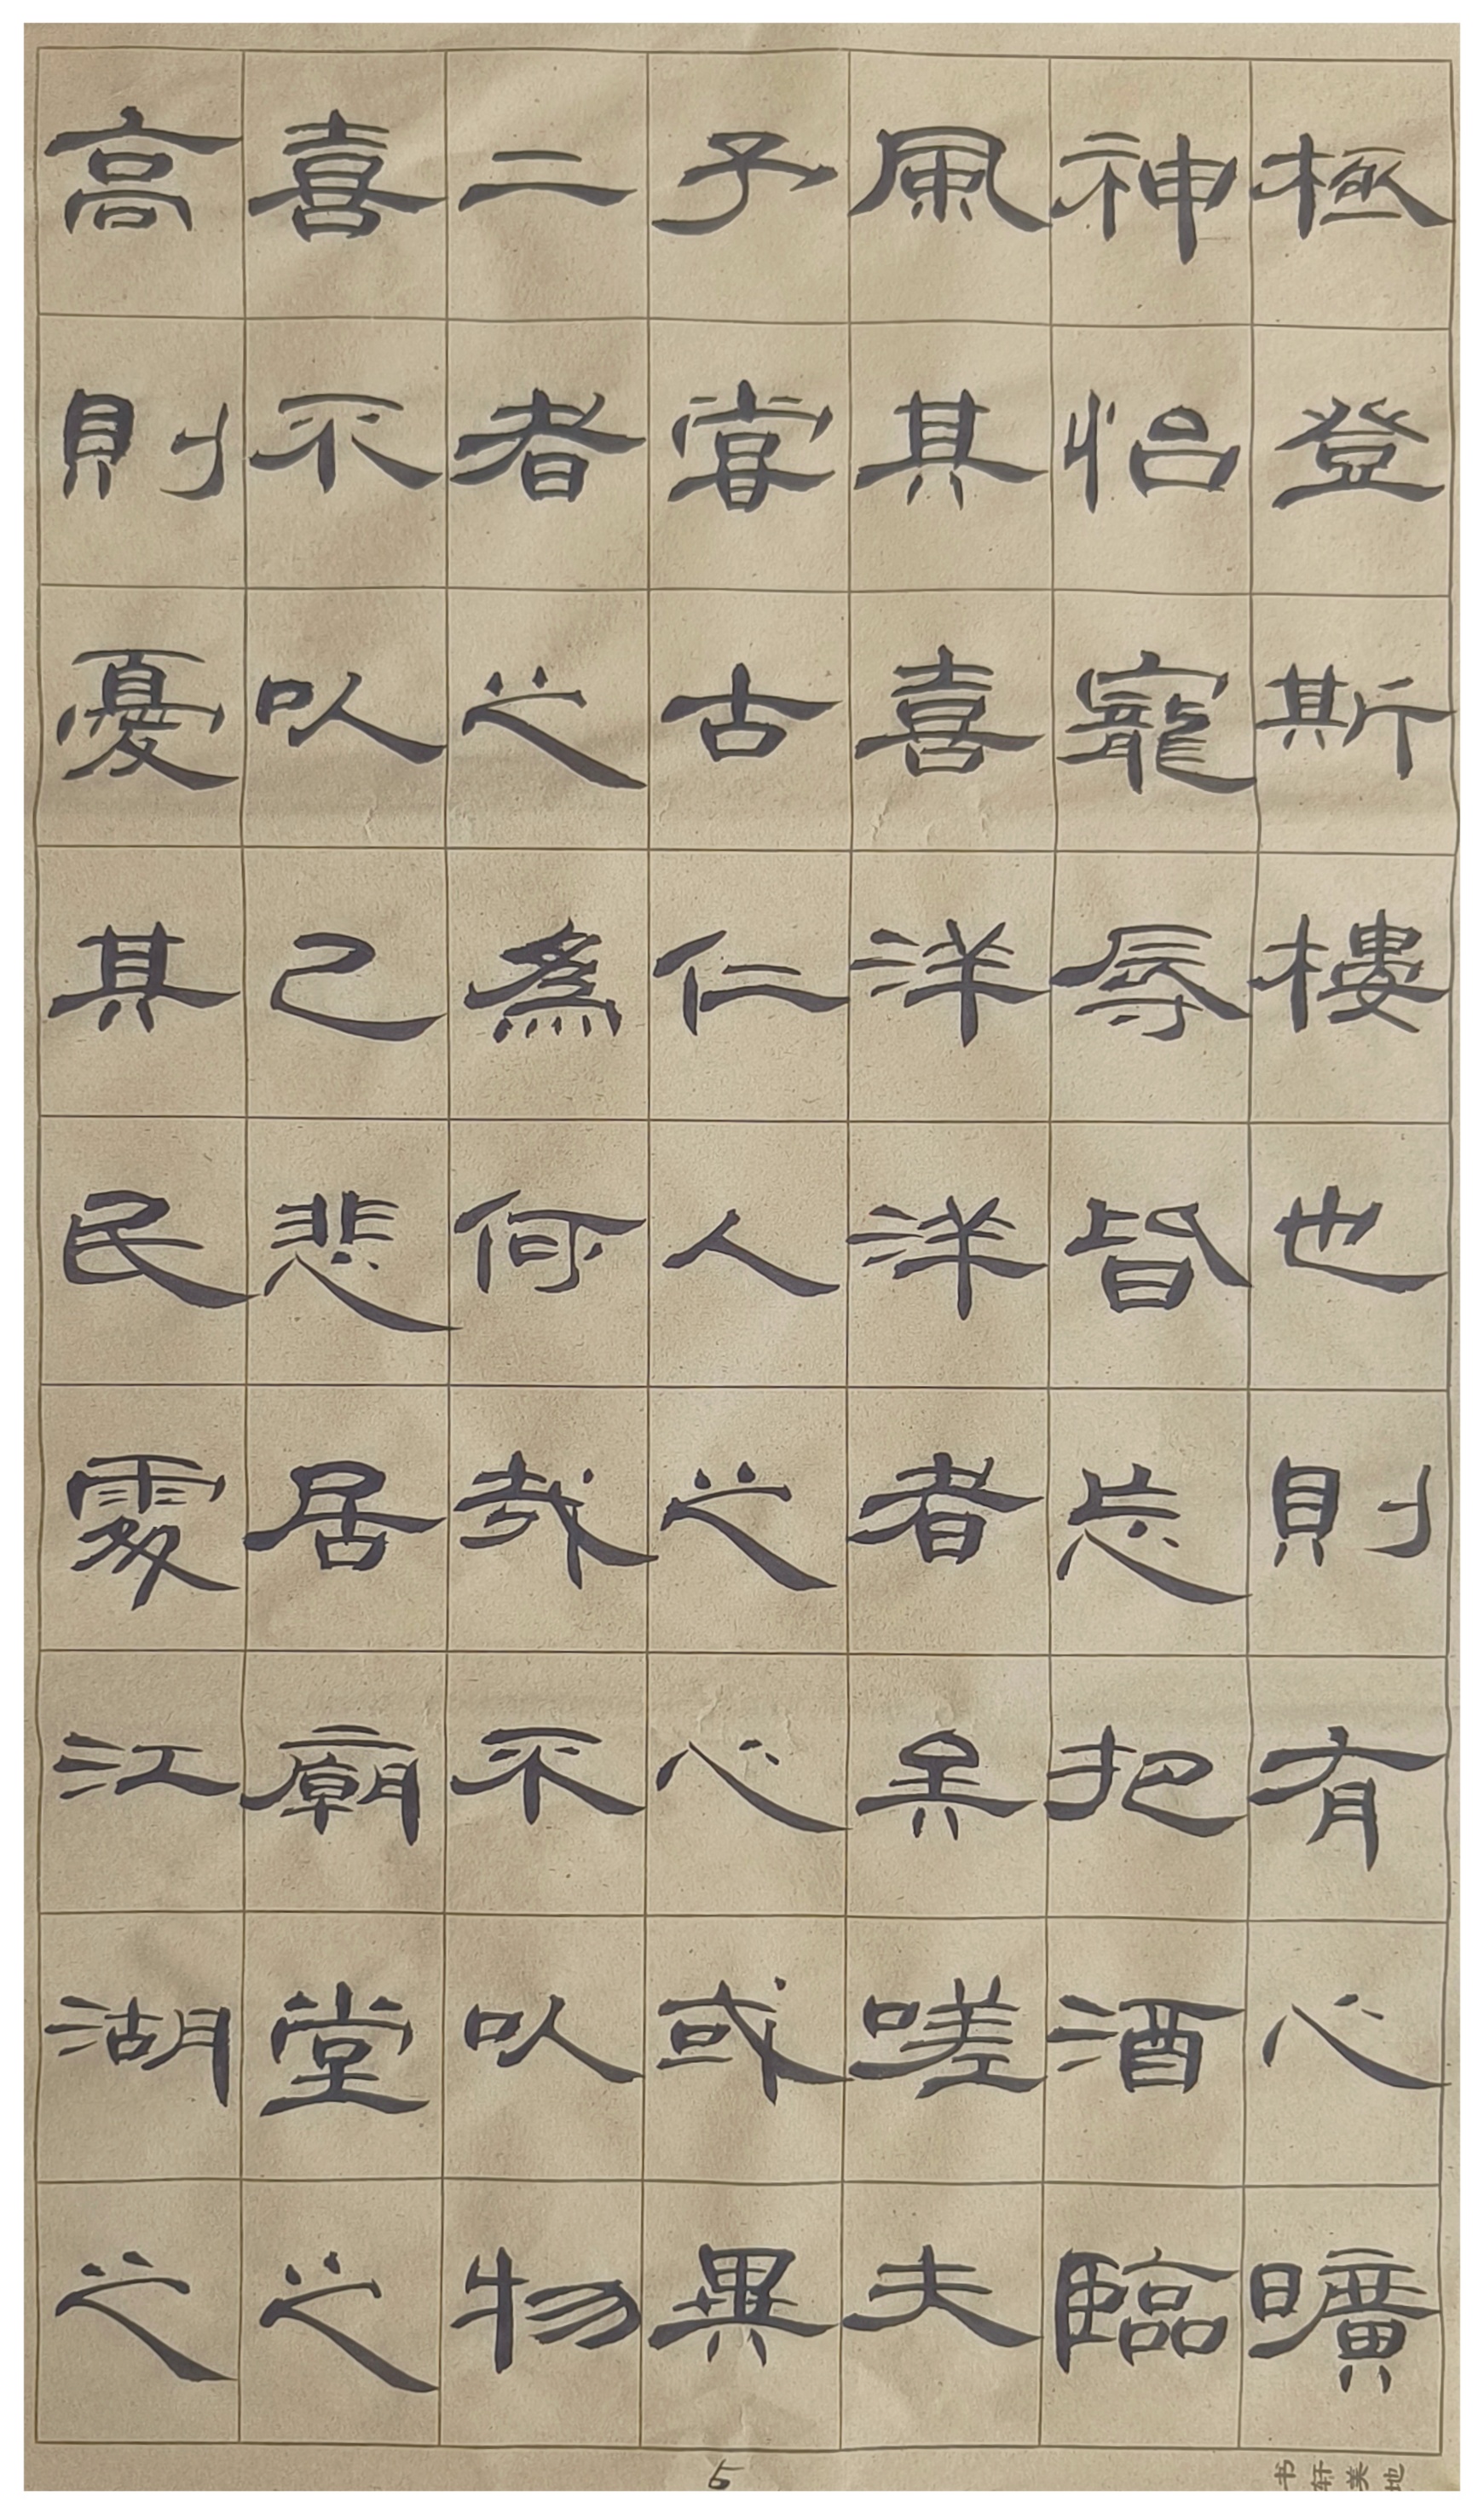 極登斯樓也則有心曠
神怡寵辱皆忘把酒臨
風其喜洋洋者矣嗟夫
子嘗古仁人之心或異
二者之為何哉不以物
喜不以己悲居廟堂之
高則憂其民處江湖之
5
书轩美地